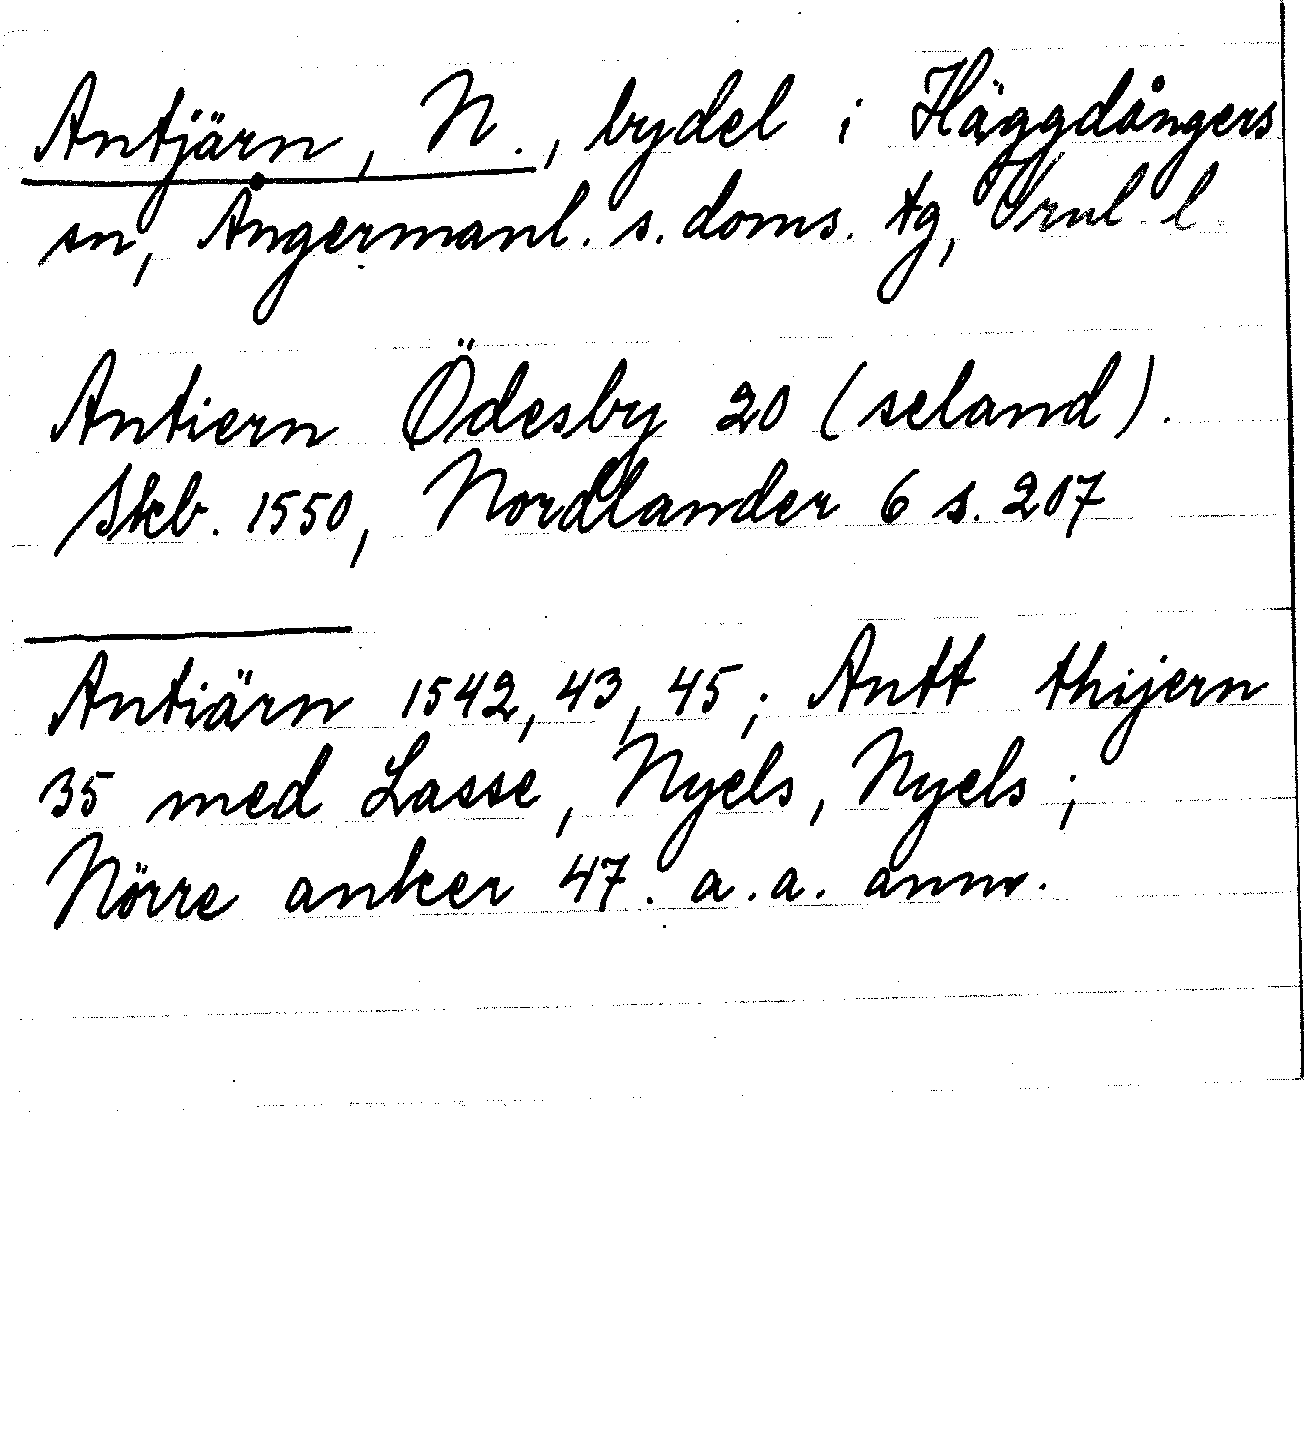 Antjärn, N., bydel i Häggdångers
sn, Ångermanl. s. doms. tg, Vrnl l
Antiern Ödesby 20 (seland).
Skb. 1550, Nordlander 6 s. 207
Antiärn 1542, 43, 45; Antt thijern
35 med Lasse, Nyels, Nyels;
Nörre anker 47. a.a. anm.